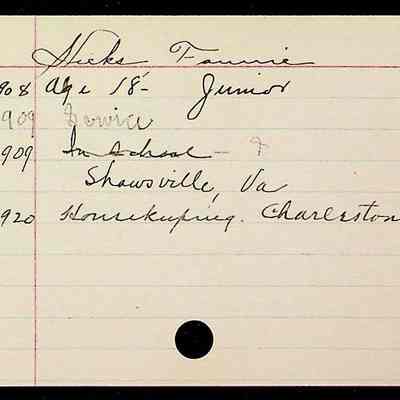 Hicks, Fannie
908 Age 18- Junior
909 Service
909 In school -
Shawsville, Va
920 Housekeeping. Charleston